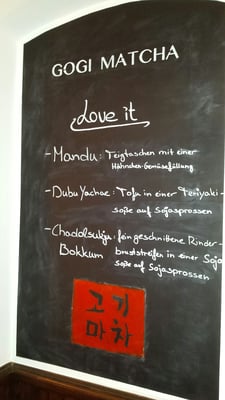 GOGI MATCHA
Love it
- Mandu: Teigtaschen mit einer
Hähnchen-Gemüsefüllung
- Dubu Yachae: Tofu in einer Teriyaki-
soße auf Sojasprossen
- Chadolbukgu: fein geschnittene Rinder-
Bokkum bruststreifen in einer Soja
soße auf Sojasprossen
고기
마차